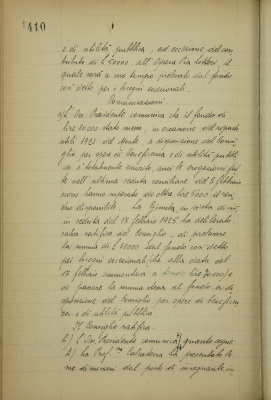 410
e di utilità pubblica, ad eccezione del con
tributo di L. 5000 all'Opera Pia
quale verrà a suo tempo prelevato dal fondo
così detto per i bisogni eccezionali.
Comunicazioni.
Presidente comunica che il fondo di
lire 20.000 stato messo, in occasione del riparto
utili 1923 del Monte, a disposizione del Consi
glio per opere di beneficenza e di utilità pubbli
ca è totalmente esaurito, anzi le erogazioni fat
te nell'ultima seduta consiliare del 5 febbraio
hanno superato di oltre lire 5000 le som
me disponibili. La Giunta in vista di ciò
in seduta del 17 febbraio 1925 ha deliberato
salva ratifica del Consiglio di prelevare
la somma di L. 20000 dal fondo così detto
per bisogni eccezionali che alla data del
17 febbraio ammontava a lire
di passare la somma stessa al fondo a di
sposizione del Consiglio per opere di beneficen
za e di utilità pubblica.
Il Consiglio ratifica.
Presidente comunica quanto segue:
ha presentato le
sue dimissioni dal posto di insegnante in